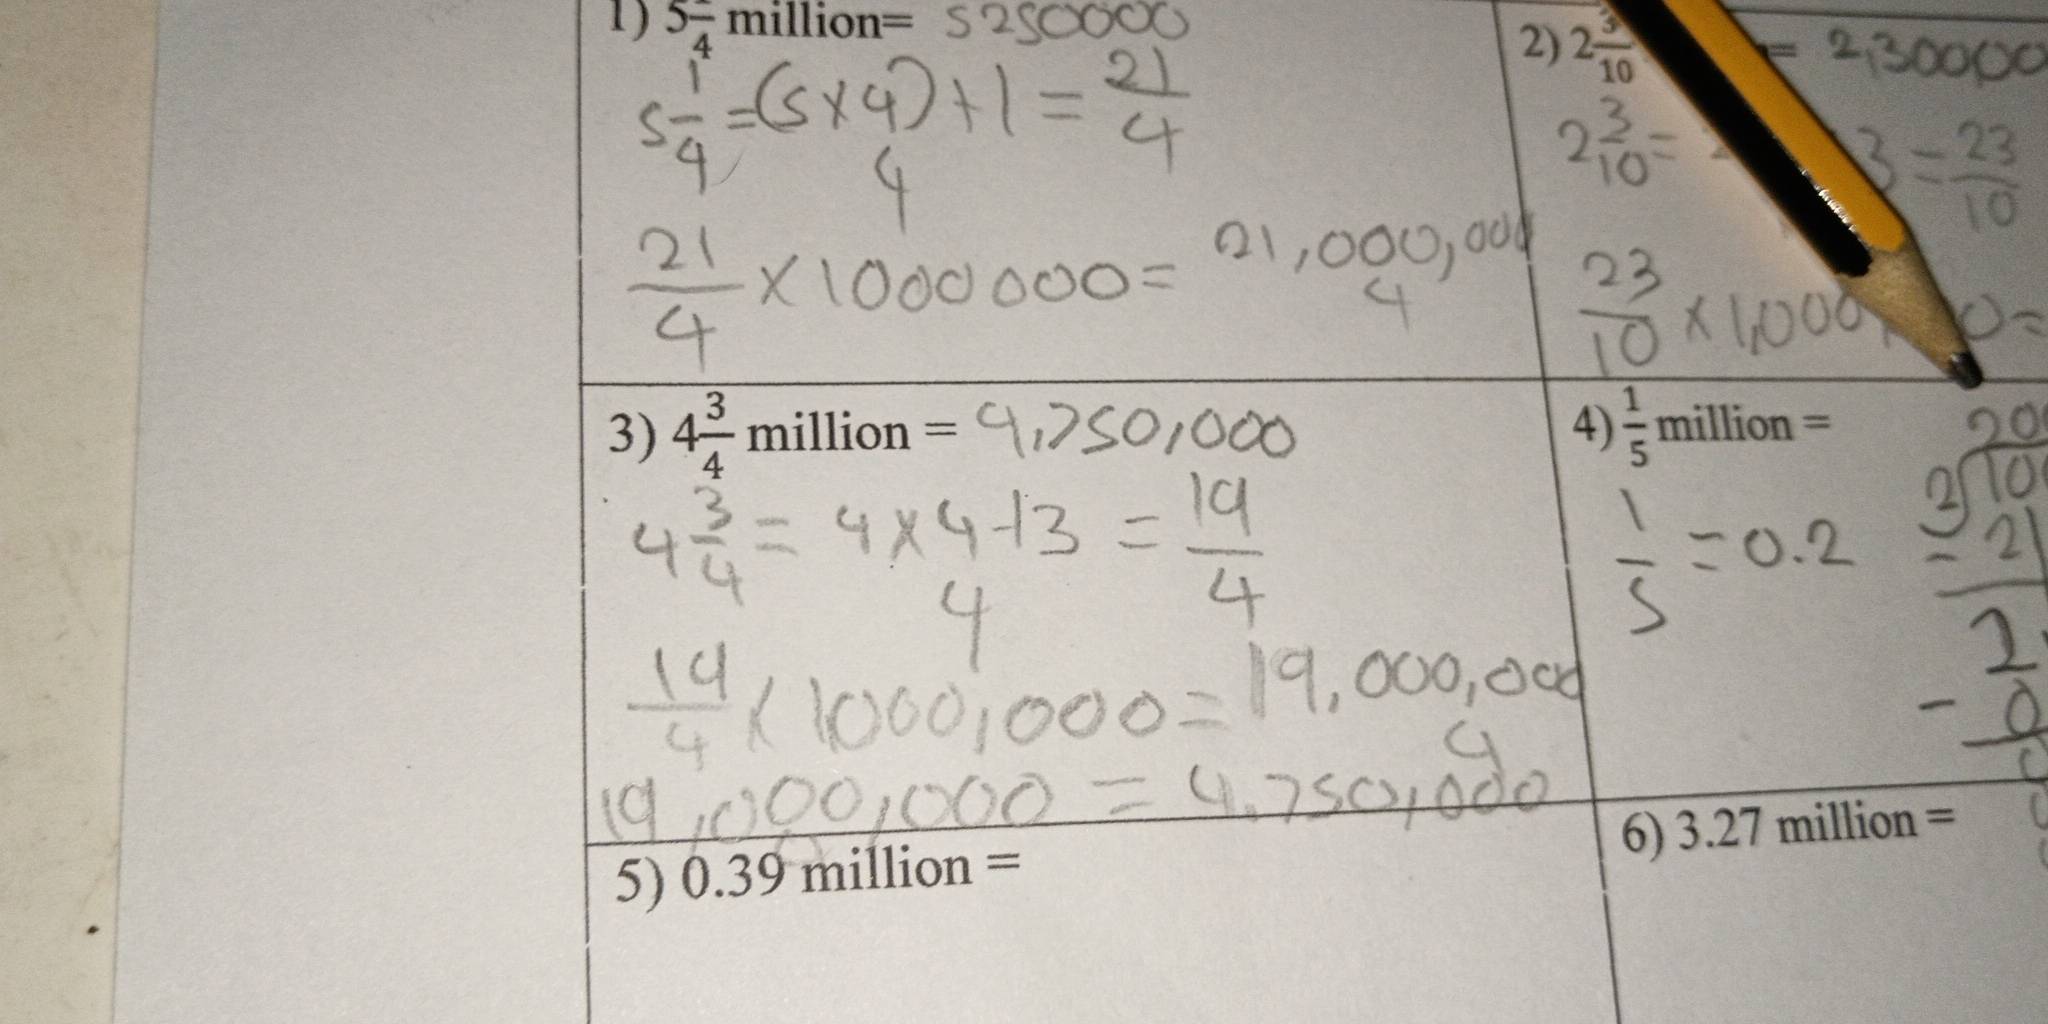 1) 5 1/4 million= 5250000
5 1/4 = (5x4)+1 / 4 = 21/4
21/4 x 1000000 = 21,000,000 / 4
2) 2 3/10 = 2,300000
2 3/10 = 3 = 23/10
23/10 x 1,000 0=
3) 4 3/4 million = 4,750,000
4 3/4 = 4x4+3 / 4 = 19/4
19/4 x 1000,000 = 19,000,000 / 4
19,000,000 = 4,750,000
4) 1/5 million =
1/5 = 0.2
5) 0.39 million =
6) 3.27 million =